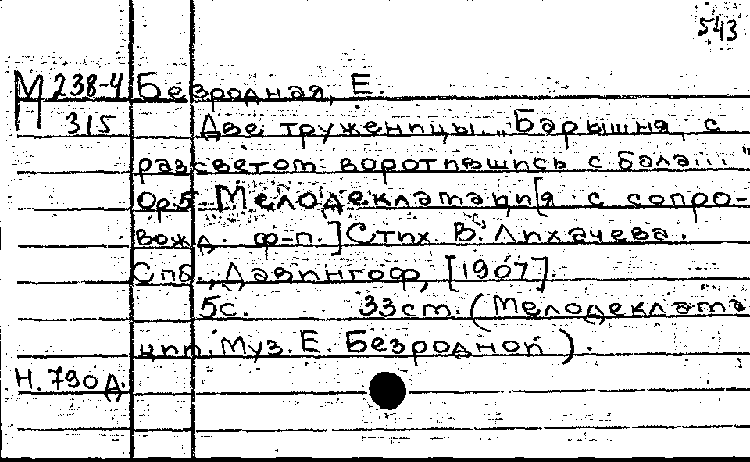 543
М 238-4 Безродная, Е.
315 Две труженицы. „Барышня, с
разсветом воротившись с бала..."
Op.5. Мелодекламаци[я с сопро-
вожд. ф-п.] Стих. В. Лихачева.
Спб., Давингоф, [1907].
5с. 33 см. (Мелодеклама
ции. Муз. Е. Безродной).
Н. 790 д.